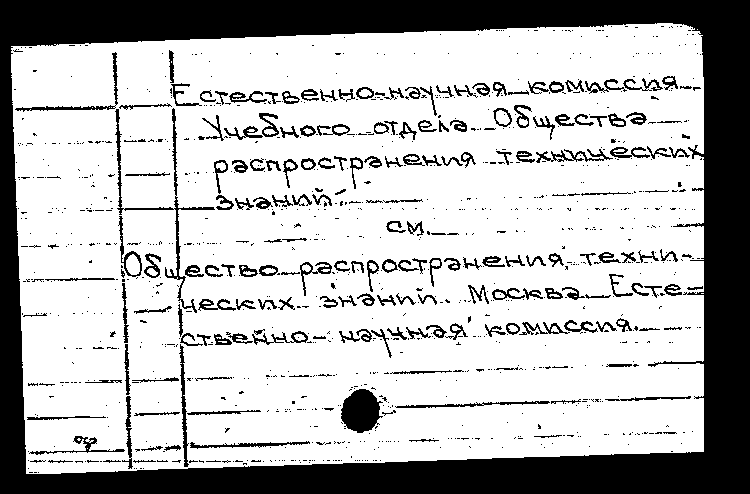 Естественно-научная комиссия
Учебного отдела Общества
распространения технических
знаний.
см.
Общество распространения техни-
ческих знаний. Москва. Есте-
ственно-научная комиссия.